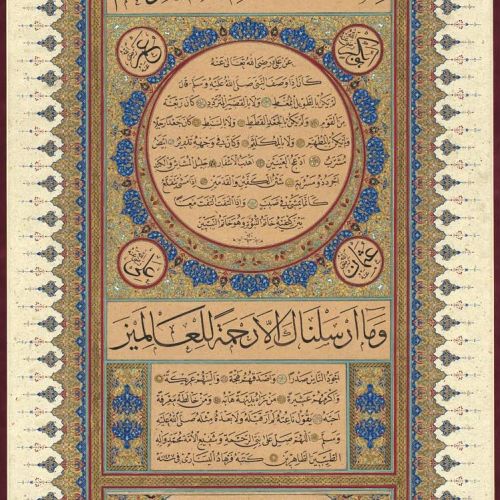 ابو بكر
عمر
عن علي رضي الله تعالى عنه
كان اذا وصف النبي صلى الله عليه وسلم قال
لم يكن بالطويل الممغط ولا بالقصير المتردد كان ربعة
من القوم ولم يكن بالجعد القطط ولا بالسبط كان جعدا رجلا
ولم يكن بالمطهم ولا بالمكلثم وكان في وجهه تدوير ابيض
مشرب ادعج العينين اهدب الاشفار جليل المشاش والكتد
اجرد ذو مسربة شثن الكفين والقدمين اذا مشى تقلع
كانما يمشي في صبب واذا التفت التفت معا
بين كتفيه خاتم النبوة وهو خاتم النبيين
عثمان
علي
وما ارسلناك الا رحمة للعالمين
اجود الناس صدرا واصدقهم لهجة والينهم عريكة
واكرمهم عشيرة من رآه بديهة هابه ومن خالطه معرفة
احبه يقول ناعته لم ار قبله ولا بعده مثله صلى الله عليه
وسلم اللهم صل على نبي الرحمة وشفيع الامة محمد وآله
الطيبين الطاهرين كتبه فرهاد